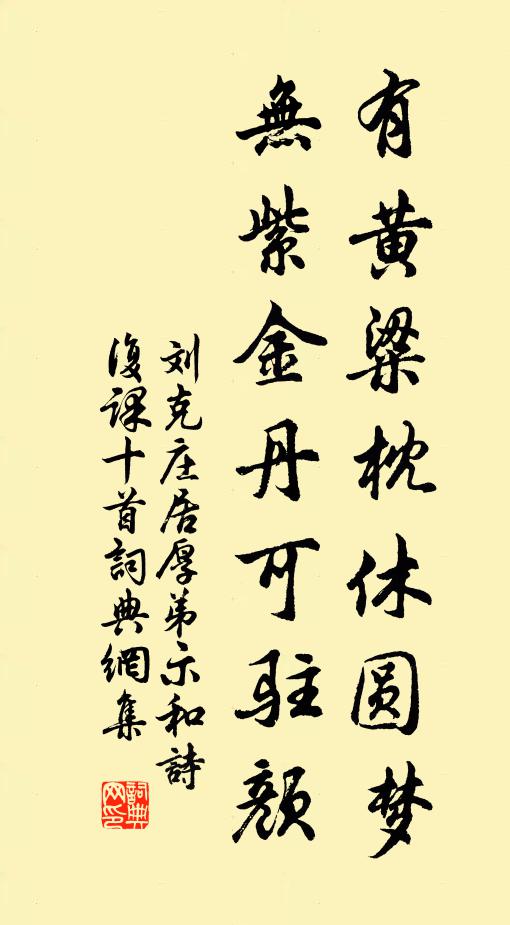 有黄粱枕休圆梦
無紫金丹可駐顏
刘克庄居厚弟示和詩
復课十首詞典網集
詞典网印